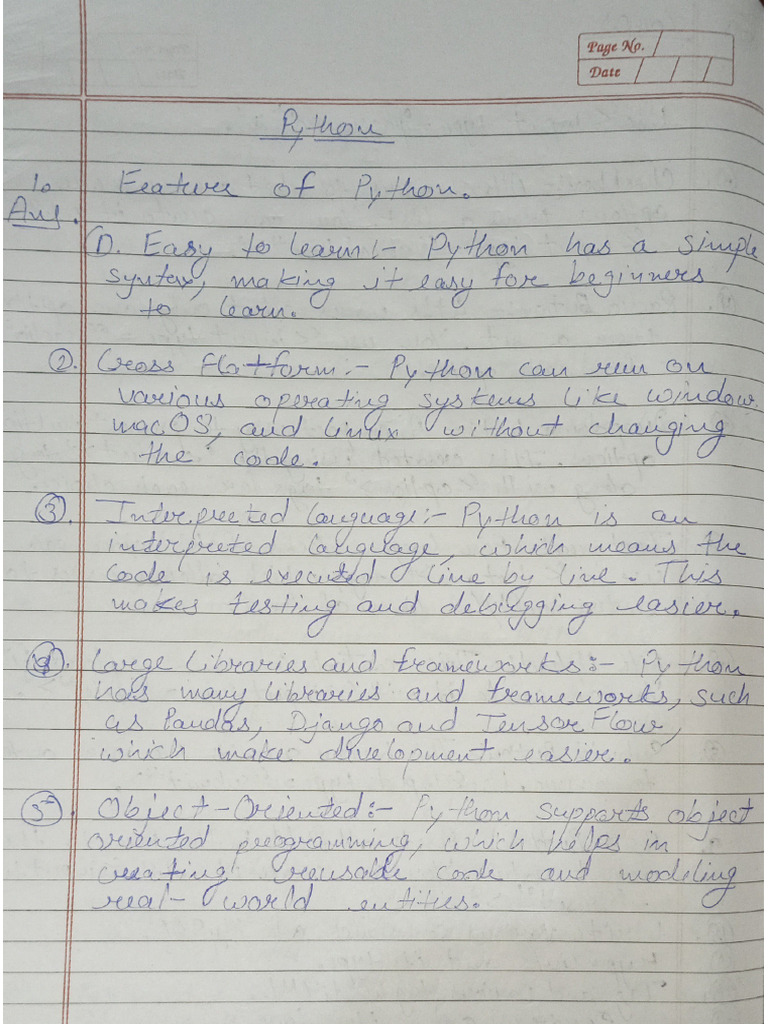 Page No.
Date
Python
1. Feature of Python.
Ans.
①. Easy to learn :- Python has a simple
syntex, making it easy for beginners
to learn.
②. Cross Flatform :- Python can run on
various operating systems like window,
macOS, and Linux without changing
the code.
③. Interpreted language :- Python is an
interpreted language, which means the
code is executed line by line. This
makes testing and debugging easier.
④. Large libraries and frameworks :- Python
has many libraries and frameworks, such
as Pandas, Django and TensorFlow,
which make development easier.
⑤. Object-Oriented :- Python supports object
oriented programming, which helps in
creating reusable code and modeling
real-world entities.